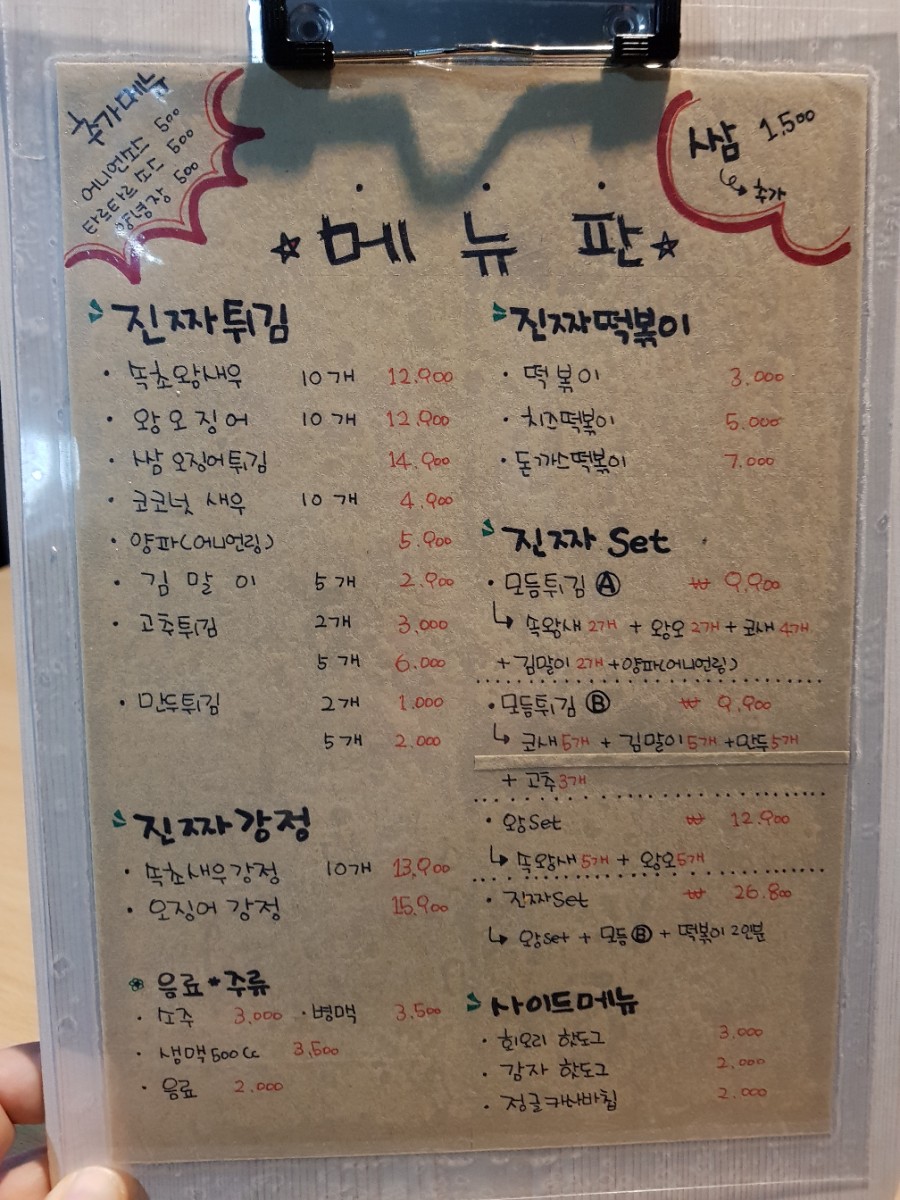 추가메뉴
어니언파우더 500
타르타르소스 500
양념장 500
쌈 1.500
추가
☆메뉴판☆
진짜튀김
· 속초왕새우 10개 12.900
· 왕오징어 10개 12.900
· 쌈오징어튀김 14.900
· 코코넛 새우 10개 4.900
· 양파(어니언링) 5.900
· 김말이 5개 2.900
· 고추튀김 2개 3.000
5개 6.000
· 만두튀김 2개 1.000
5개 2.000
진짜강정
· 속초새우강정 10개 13.900
· 오징어강정 15.900
음료*주류
· 소주 3.000 · 병맥 3.500
· 생맥500cc 3.500
· 음료 2.000
진짜떡볶이
· 떡볶이 3.000
· 치즈떡볶이 5.000
· 돈까스떡볶이 7.000
진짜 Set
· 모듬튀김 Ⓐ ₩ 9.900
↳ 속왕새 2개 + 왕오 2개 + 코새 4개
+ 김말이 2개 + 양파(어니언링)
· 모듬튀김 Ⓑ ₩ 9.900
↳ 코새 5개 + 김말이 5개 + 만두 5개
+ 고추 3개
· 왕Set ₩ 12.900
↳ 속왕새 5개 + 왕오 5개
· 진짜Set ₩ 26.800
↳ 왕set + 모듬 Ⓑ + 떡볶이 2인분
사이드메뉴
· 회오리 핫도그 3.000
· 감자 핫도그 2.000
· 정글카사바칩 2.000